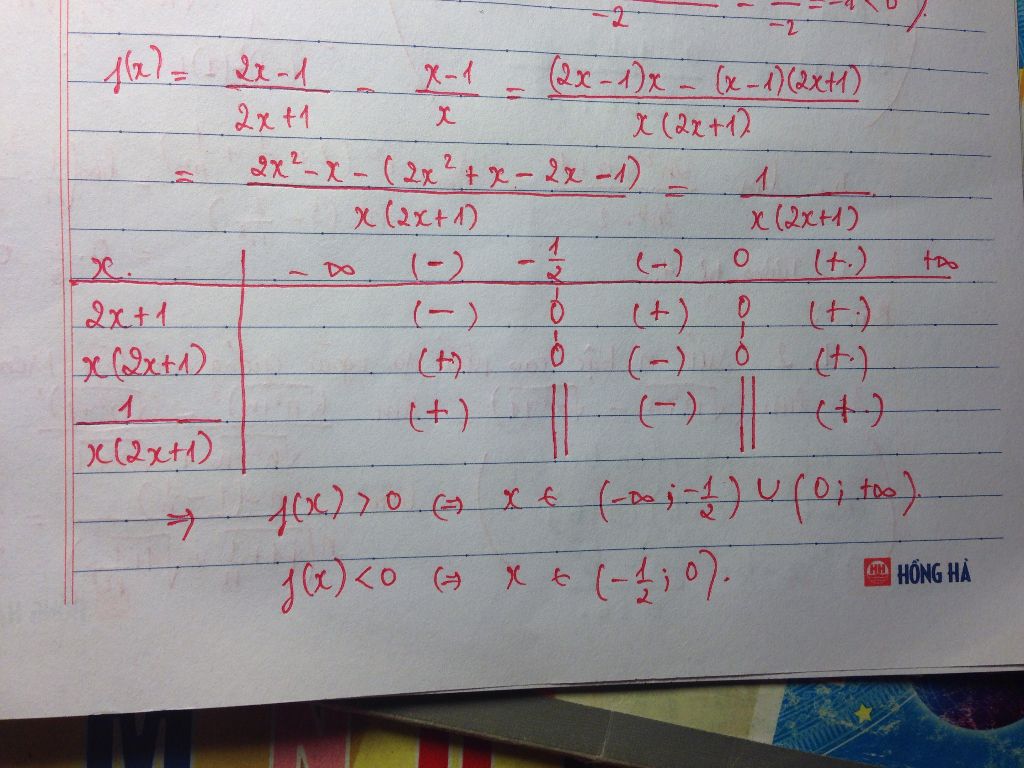 -2 - -2 = -1 < 0).
f(x) = (2x-1)/(2x+1) - (x-1)/x = ((2x-1)x - (x-1)(2x+1))/(x(2x+1))
= (2x² - x - (2x² + x - 2x - 1))/(x(2x+1)) = 1/(x(2x+1))
x. -∞ (-) -1/2 (-) 0 (+.) +∞
2x+1 (-) 0 (+) 0 (+.)
x(2x+1) (+) 0 (-) 0 (+.)
1/(x(2x+1)) (+) || (-) || (+.)
⇒ f(x) > 0 ⇔ x ∈ (-∞; -1/2) ∪ (0; +∞).
f(x) < 0 ⇔ x ∈ (-1/2; 0).
HH HỒNG HÀ